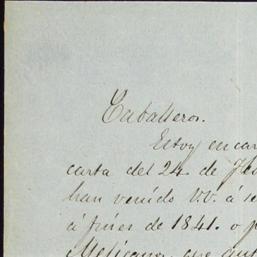 Caballeros.
Estoy en car
carta del 24. de Fe
han venido V.V. á se
á fines de 1841. o p
Mejicano, que ant